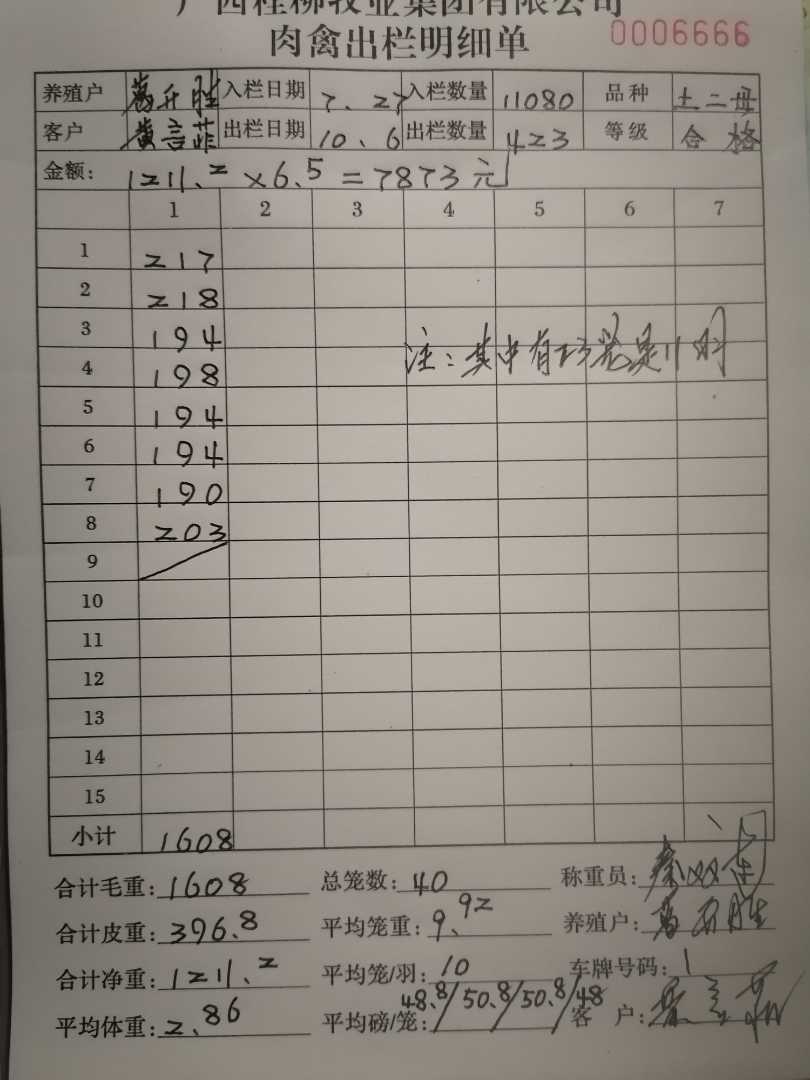 广西桂柳牧业集团有限公司
肉禽出栏明细单 0006666
养殖户 入栏日期 7、27 入栏数量 11080 品种 土二母
客户 黄言菲 出栏日期 10、6 出栏数量 423 等级 合格
金额: 1211.2 ×6.5 =7873元
1 2 3 4 5 6 7
1 217
2 218
3 194
注:其中有23笼是11的
4 198
5 194
6 194
7 190
8 203
9
10
11
12
13
14
15
小计 1608
合计毛重: 1608 总笼数: 40 称重员:
合计皮重: 396.8 平均笼重: 9.92 养殖户:
合计净重: 1211.2 平均笼/羽: 10 车牌号码: 1
平均体重: 2.86 平均磅/笼: 48.8/50.8/50.8/48 客 户: